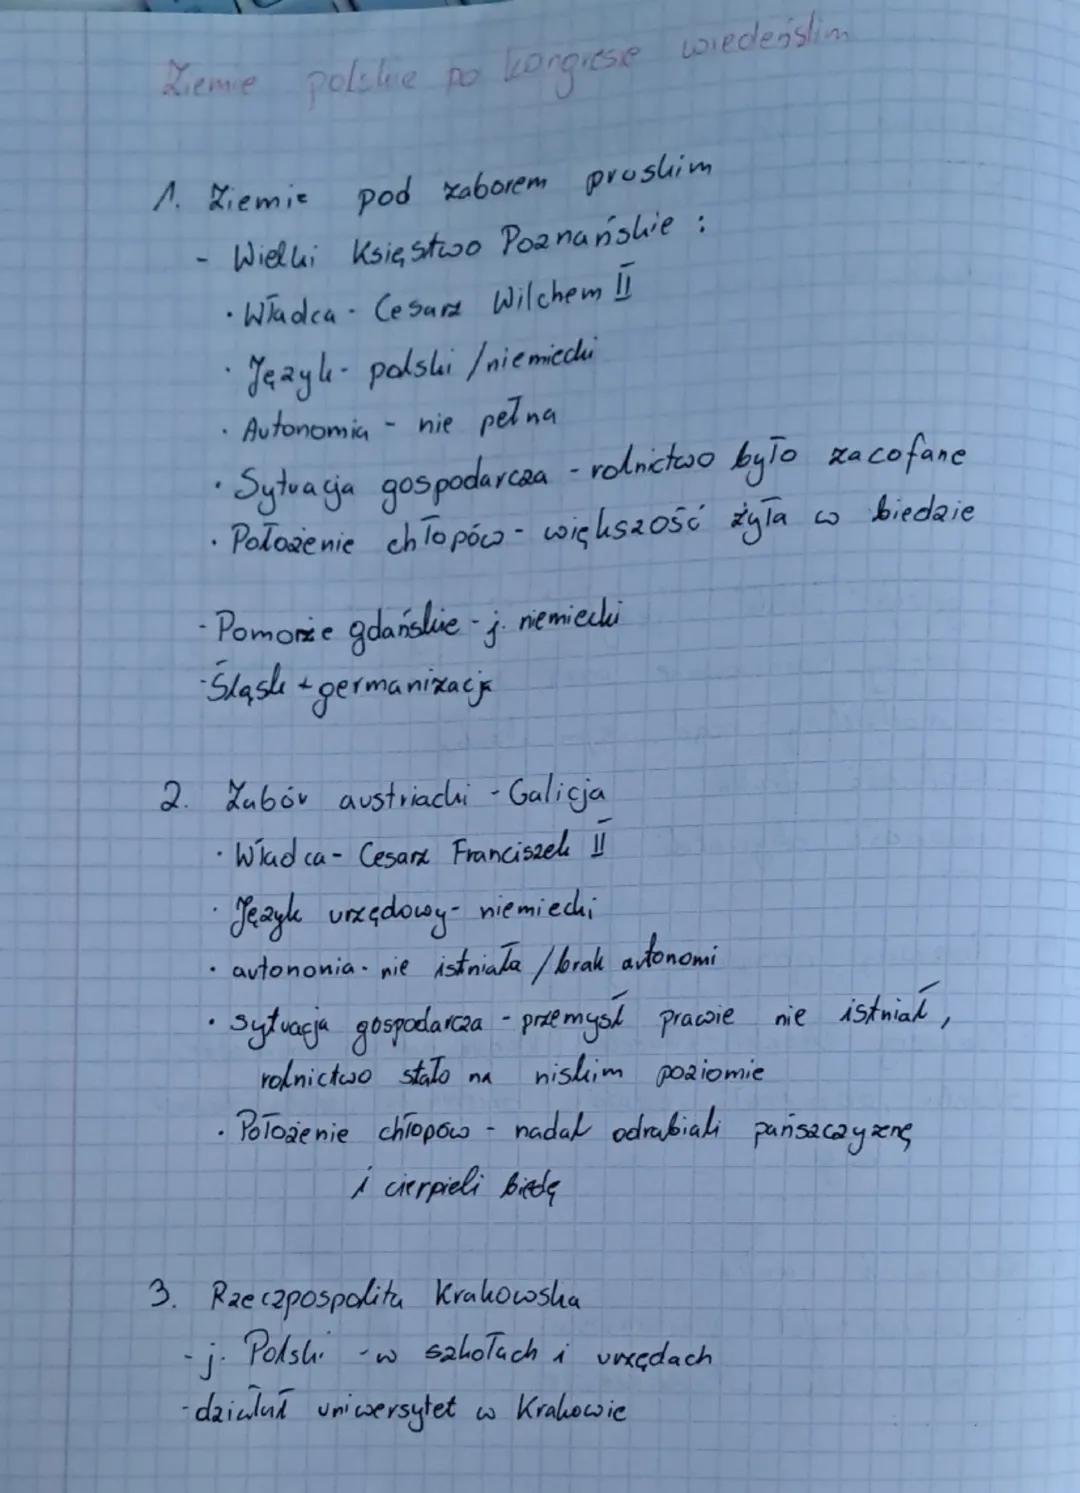 Ziemie polskie po kongresie wiedeńskim
1. Ziemie pod zaborem pruskim
- Wielki Księstwo Poznańskie :
· Władca - Cesarz Wilchem II
· Język - polski / niemiecki
· Autonomia - nie pełna
· Sytuacja gospodarcza - rolnictwo było zacofane
· Położenie chłopów - większość żyła w biedzie
- Pomorze gdańskie - j. niemiecki
- Śląsk + germanizacja
2. Zabór austriacki - Galicja
· Władca - Cesarz Franciszek II
· Język urzędowy - niemiecki
· autononia - nie istniała / brak autonomi
· sytuacja gospodarcza - przemysł prawie nie istniał,
rolnictwo stało na niskim poziomie
· Położenie chłopów - nadal odrabiali pańszczyznę
i cierpieli biedę
3. Rzeczpospolita Krakowska
- j. Polski - w szkołach i urzędach
- działał uniwersytet w Krakowie